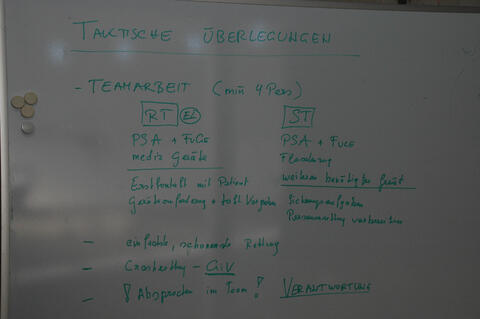 TAKTISCHE ÜBERLEGUNGEN
- TEAMARBEIT (min 4 Pers)
RT EL
PSA + FuGe
mediz Geräte
Erstkontakt mit Patient
Geräteanforderung + takt Vorgehen
ST
PSA + FuGe
weiteres benötigtes Gerät
Sicherungsaufgaben
- einfachste, schonende Rettung
- Crashrettung - GiV
- ! Absprachen im Team ! VERANTWORTUNG